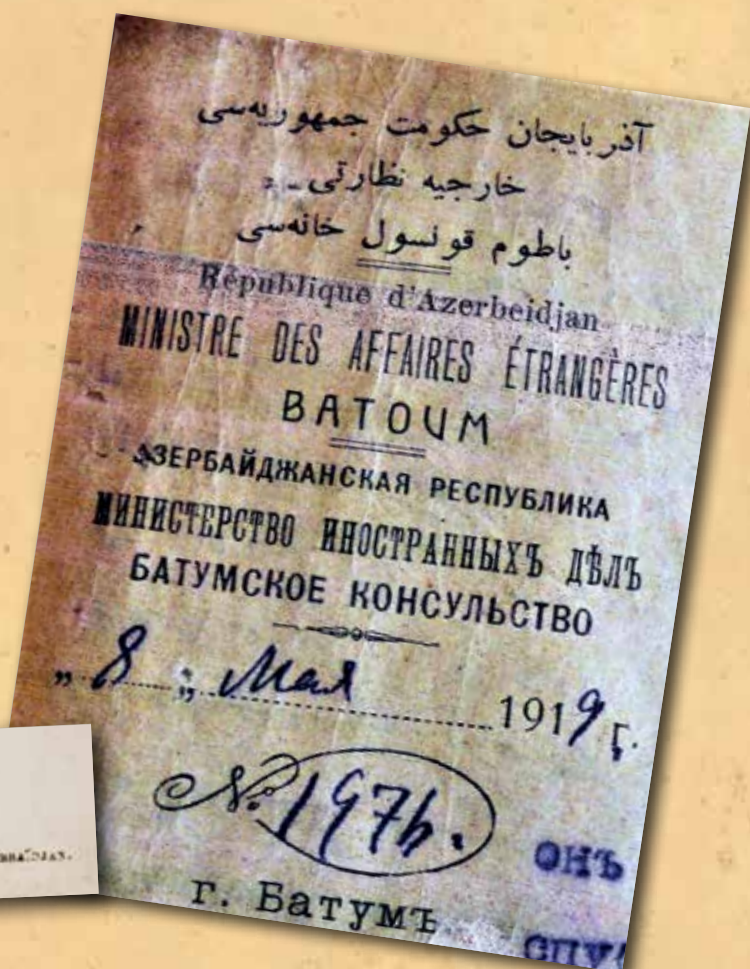 آذربایجان حکومت جمهوریه‌سی
خارجیه نظارتی
باطوم قونسول خانه‌سی
République d'Azerbeidjan
MINISTRE DES AFFAIRES ÉTRANGÈRES
BATOUM
АЗЕРБАЙДЖАНСКАЯ РЕСПУБЛИКА
МИНИСТЕРСТВО ИНОСТРАННЫХЪ ДѢЛЪ
БАТУМСКОЕ КОНСУЛЬСТВО
„ 8 „ Мая 1919 г.
№ 1976.
ОНЪ
г. Батумъ